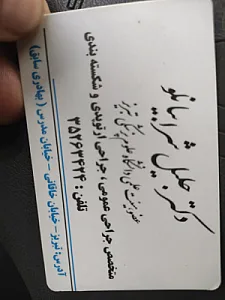 دکتر جلیل شرابیانلو
عضو هیئت علمی دانشگاه علوم پزشکی تبریز
متخصص جراحی عمومی، جراحی ارتوپدی و شکسته بندی
تلفن: ۳۵۲۶۳۴۲۴
آدرس: تبریز - خیابان خاقانی - خیابان مدرس (بهادری سابق)